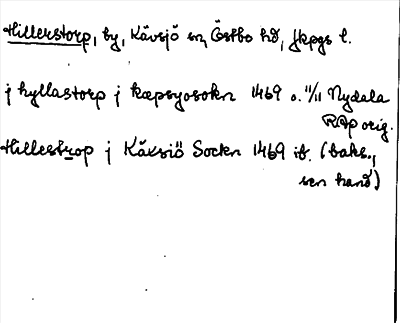 Hillerstorp, by, Kävsjö sn, Östbo hd, Jkpgs l.
j hyllastorp j kæpsyosokn 1469 o. 11/11 Nydala
RAp orig.
Hillestrop j Käksiö Sockn 1469 ib. (baks.,
sen hand)